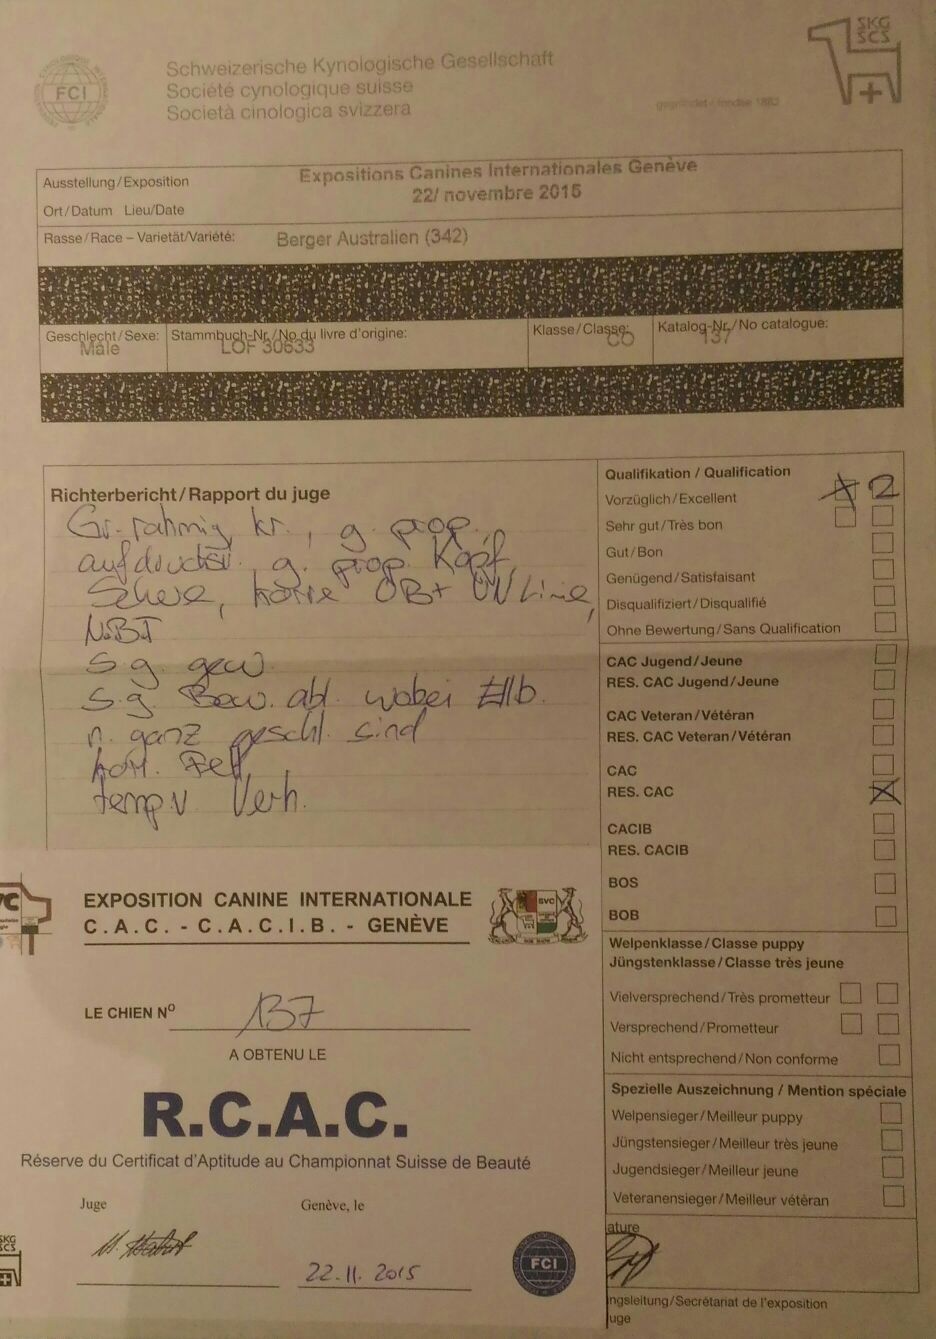 FCI
Schweizerische Kynologische Gesellschaft
Société cynologique suisse
Società cinologica svizzera
gegründet / fondée 1883
SKG
SCS
Ausstellung/Exposition
Expositions Canines Internationales Genève
Ort/Datum Lieu/Date
22/ novembre 2015
Rasse/Race – Varietät/Variété:
Berger Australien (342)
Geschlecht/Sexe:
Mâle
Stammbuch-Nr./No du livre d'origine:
LOF 30633
Klasse/Classe:
CO
Katalog-Nr./No catalogue:
137
Richterbericht/Rapport du juge
Gr. rahmig, kr., g. prop.,
g. prop. Kopf,
Schere, OB+ UN Linie,
s.g. gew.
s.g. Bew. abl. wobei Ellb.
n. ganz geschl. sind
korr. Fell
temp.v. Verh.
Qualifikation / Qualification
Vorzüglich/Excellent
2
Sehr gut/Très bon
Gut/Bon
Genügend/Satisfaisant
Disqualifiziert/Disqualifié
Ohne Bewertung/Sans Qualification
CAC Jugend/Jeune
RES. CAC Jugend/Jeune
CAC Veteran/Vétéran
RES. CAC Veteran/Vétéran
CAC
RES. CAC
CACIB
RES. CACIB
BOS
BOB
Welpenklasse/Classe puppy
Jüngstenklasse/Classe très jeune
Vielversprechend/Très prometteur
Versprechend/Prometteur
Nicht entsprechend/Non conforme
Spezielle Auszeichnung / Mention spéciale
Welpensieger/Meilleur puppy
Jüngstensieger/Meilleur très jeune
Jugendsieger/Meilleur jeune
Veteranensieger/Meilleur vétéran
ature
ngsleitung/Secrétariat de l'exposition
uge
VC
EXPOSITION CANINE INTERNATIONALE
C.A.C. - C.A.C.I.B. - GENÈVE
SVC
LE CHIEN Nº 137
A OBTENU LE
R.C.A.C.
Réserve du Certificat d'Aptitude au Championnat Suisse de Beauté
Juge
Genève, le
22.11.2015
SKG
SCS
FCI